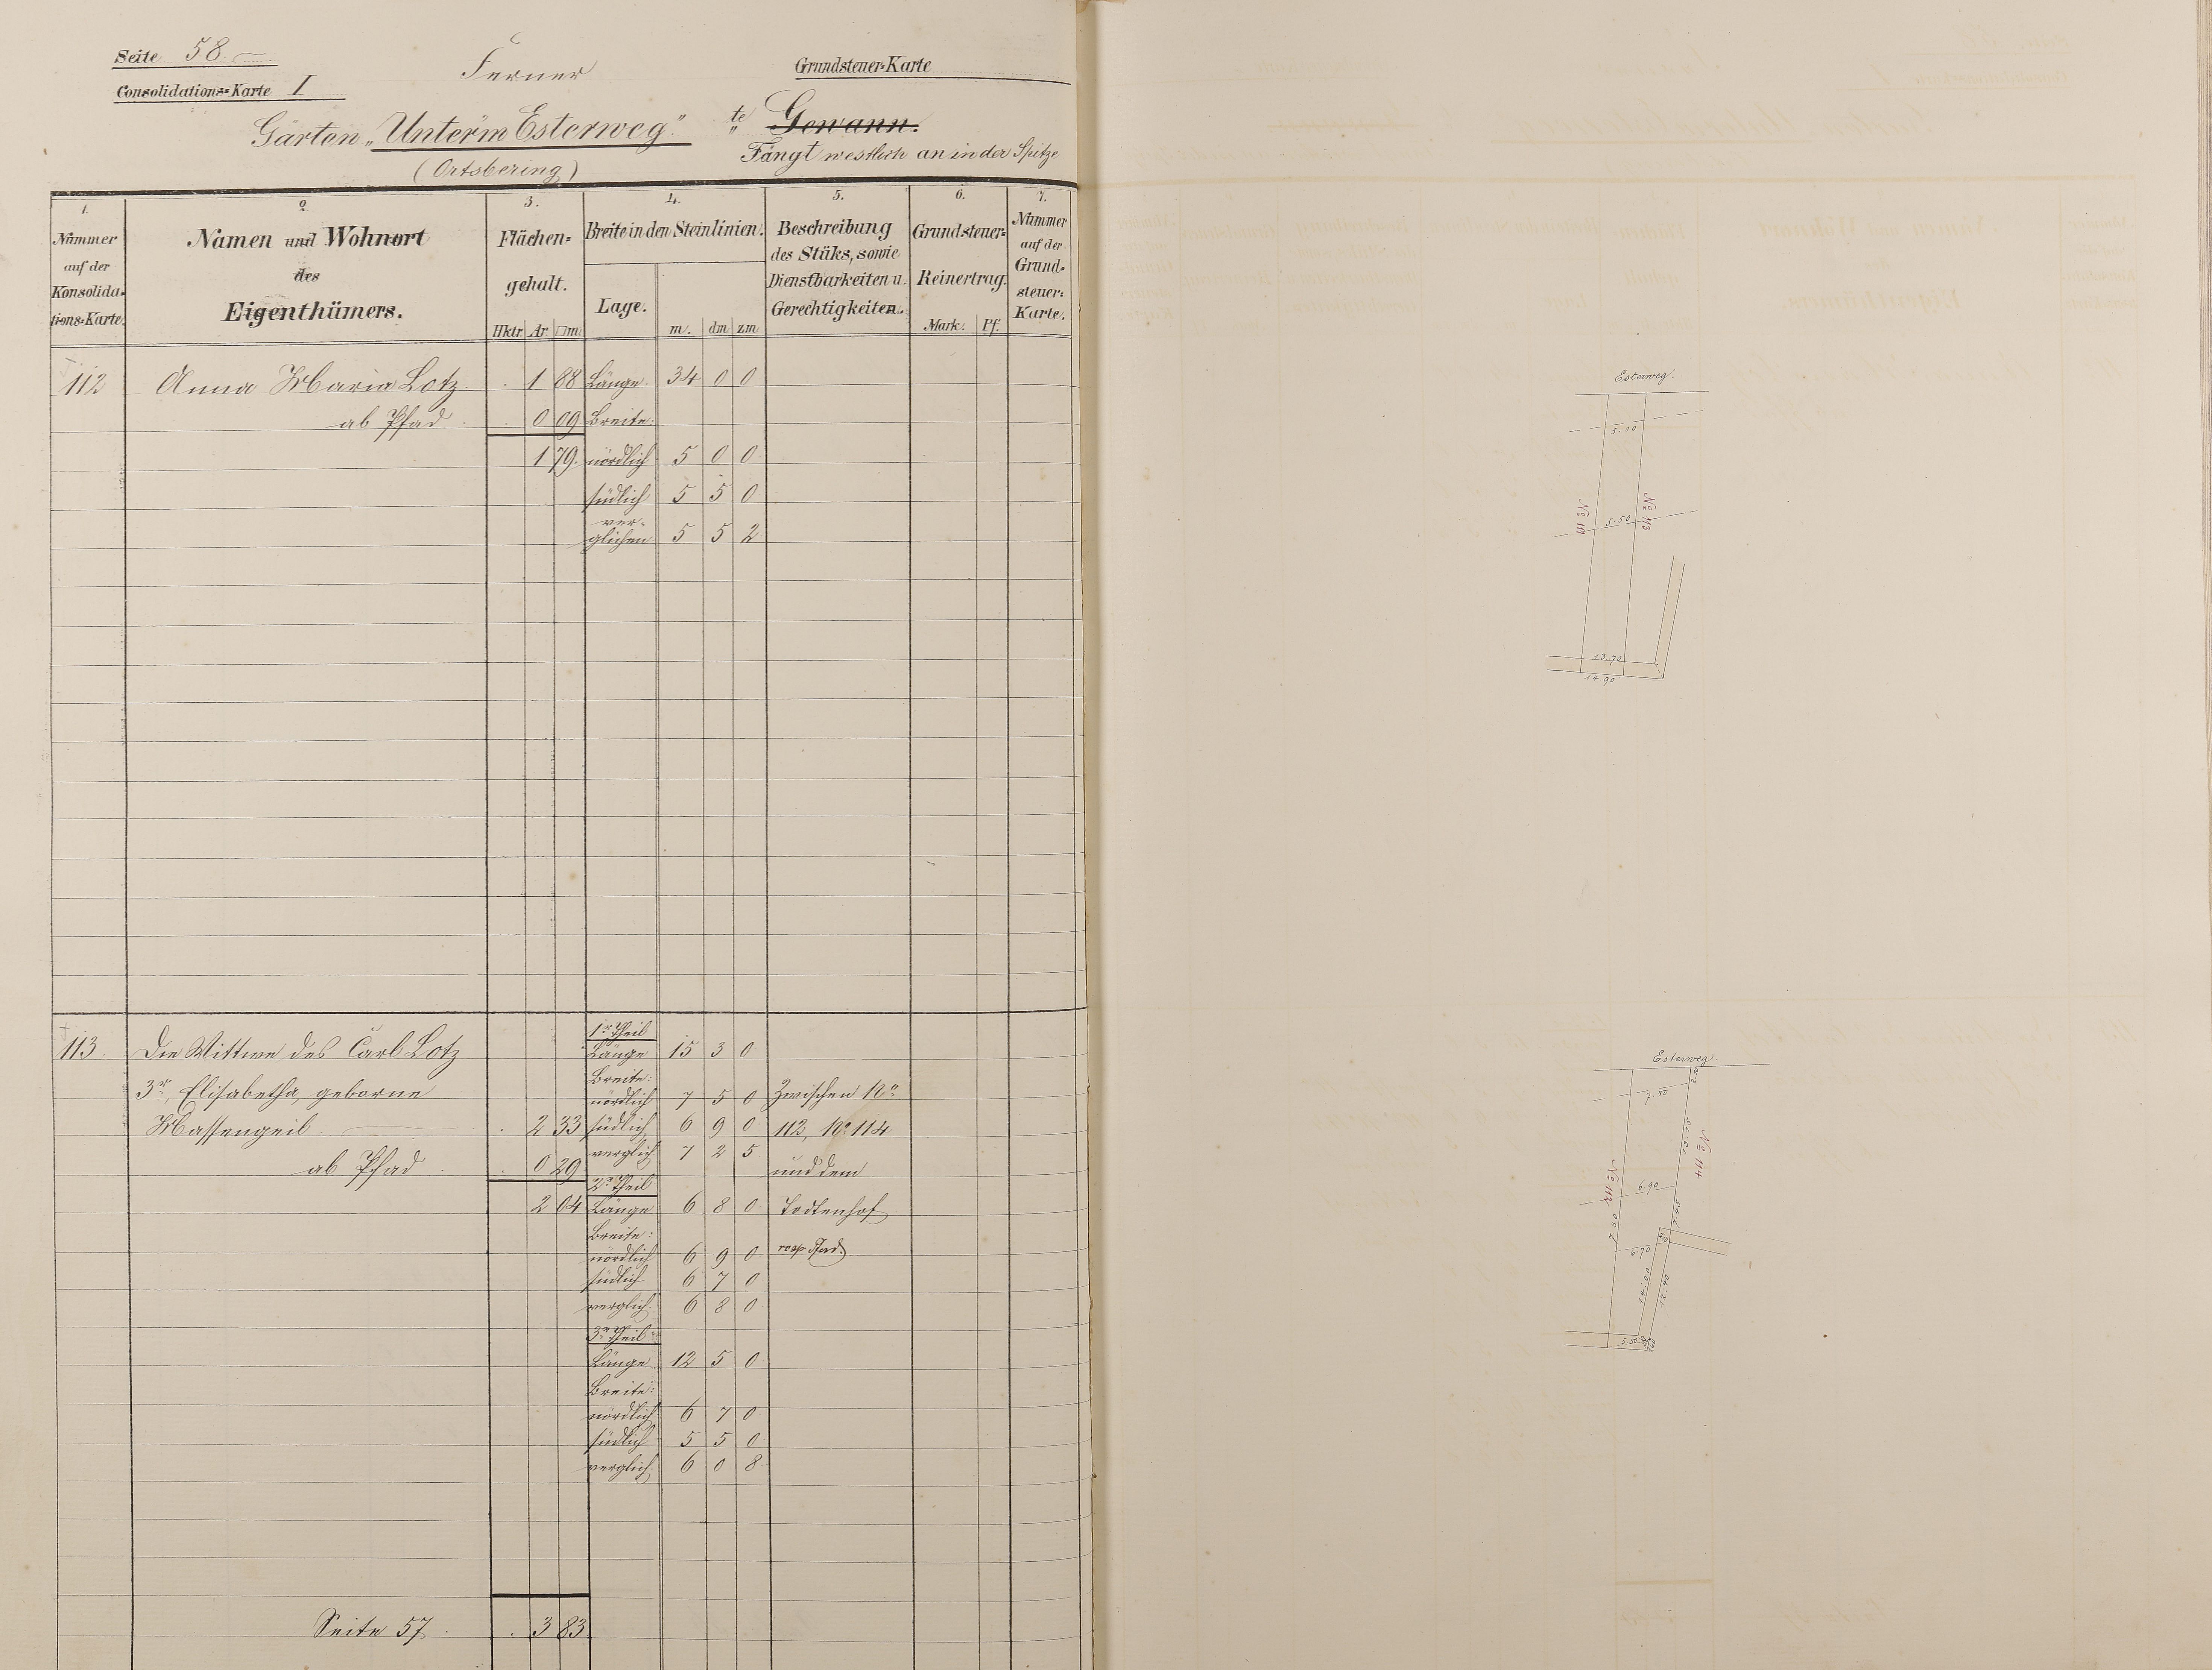 Seite 58.
Consolidations=Karte I
Ferner
Grundsteuer=Karte
Gärten „Unter'm Esterweg." te Gewann.
(Ortsbering)
Fängt westlich an in der Spitze
1. 2 3. 4. 5. 6. 7.
Nummer auf der Konsolida-tions=Karte.
Namen und Wohnort
des
Eigenthümers.
Flächen=
gehalt.
Hktr. Ar □m
Breite in den Steinlinien.
Lage. m. dm zm
Beschreibung
des Stüks, sowie
Dienstbarkeiten u.
Gerechtigkeiten.
Grundsteuer=
Reinertrag.
Mark. Pf.
Nummer
auf der
Grund-
steuer=
Karte.
112 Anna Maria Lotz . 1 88 Länge 34 0 0
ab Pfad . 0 09 Breite:
1 79 nördlich 5 0 0
südlich 5 5 0
ver-
glichen 5 5 2
113. Die Wittwe des Carl Lotz
3r, Elisabetha, geborne
Massengeil . 2 33
ab Pfad . 0 29
2 04
1r Theil
Länge 15 3 0
Breite:
nördlich 7 5 0
südlich 6 9 0
verglich 7 2 5
2r Theil
Länge 6 8 0
Breite:
nördlich 6 9 0
südlich 6 7 0
verglich. 6 8 0
3r Theil
Länge 12 5 0
Breite:
nördlich 6 7 0
südlich 5 5 0
verglich. 6 0 8
Zwischen No
112, No 114
und dem
Todtenhof
resp Pfad.
Seite 57 . 3 83
Esterweg.
5.00
No 111
No 113
5.50
13.70
14.90
Esterweg.
7.50
No 114
No 112
6.90
6.70
14.00
12.40
5.50